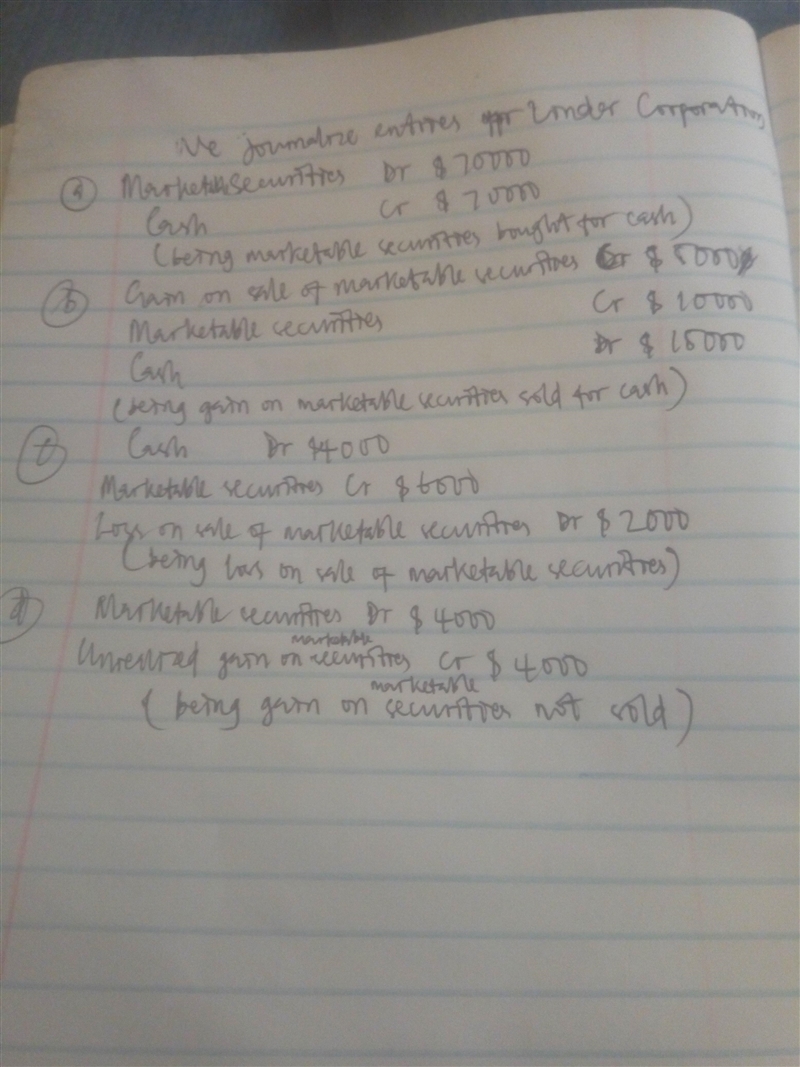 We journalize entries for Linder Corporation
(a) Marketable securities Dr $ 70000
Cash Cr $ 70000
(being marketable securities bought for cash)
(b) Gain on sale of marketable securities Cr $ 5000
Marketable securities Cr $ 10000
Cash Dr $ 15000
(being gain on marketable securities sold for cash)
(c) Cash Dr $4000
Marketable securities Cr $ 6000
Loss on sale of marketable securities Dr $ 2000
(being loss on sale of marketable securities)
(d) Marketable securities Dr $ 4000
Unrealized gain on marketable securities Cr $ 4000
(being gain on marketable securities not sold)